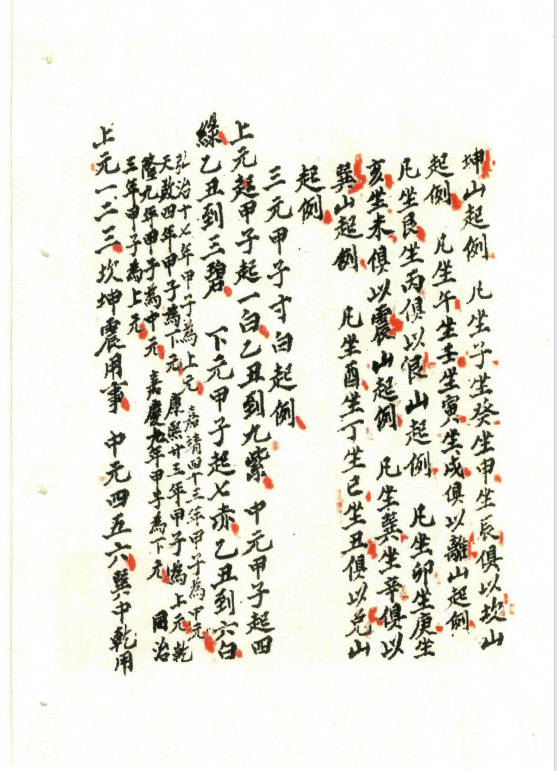 坤山起例 凡坐子坐癸坐甲坐辰俱以坎山
起例 凡坐午坐壬坐寅坐戌俱以離山起例
凡坐艮坐丙俱以艮山起例 凡坐卯坐庚坐
亥坐未俱以震山起例 凡坐巽坐辛俱以
巽山起例 凡坐酉坐丁坐巳坐丑俱以兌山
起例
三元甲子寸白起例
上元起甲子起一白乙丑到九紫 中元甲子起四
綠乙丑到三碧 下元甲子起七赤乙丑到六白
弘治十七年甲子為上元 嘉靖四十三年甲子為中元
天啟四年甲子為下元 康熙廿三年甲子為上元乾
隆九年甲子為中元 嘉慶九年甲子為下元 同治
三年甲子為上元
上元一二三坎坤震用事 中元四五六巽中乾用